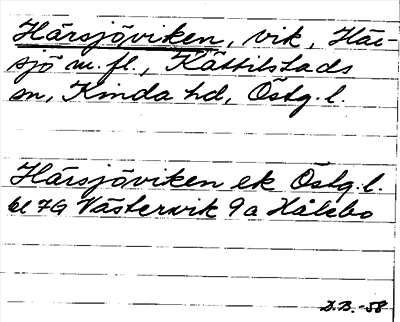 Härsjöviken, vik, Här-
sjö m.fl., Kättilstads
sn, Kinda hd, Östg.l.
Härsjöviken ek Östg.l.
bl 7G Västervik 9a Hålebo
D.B.-58